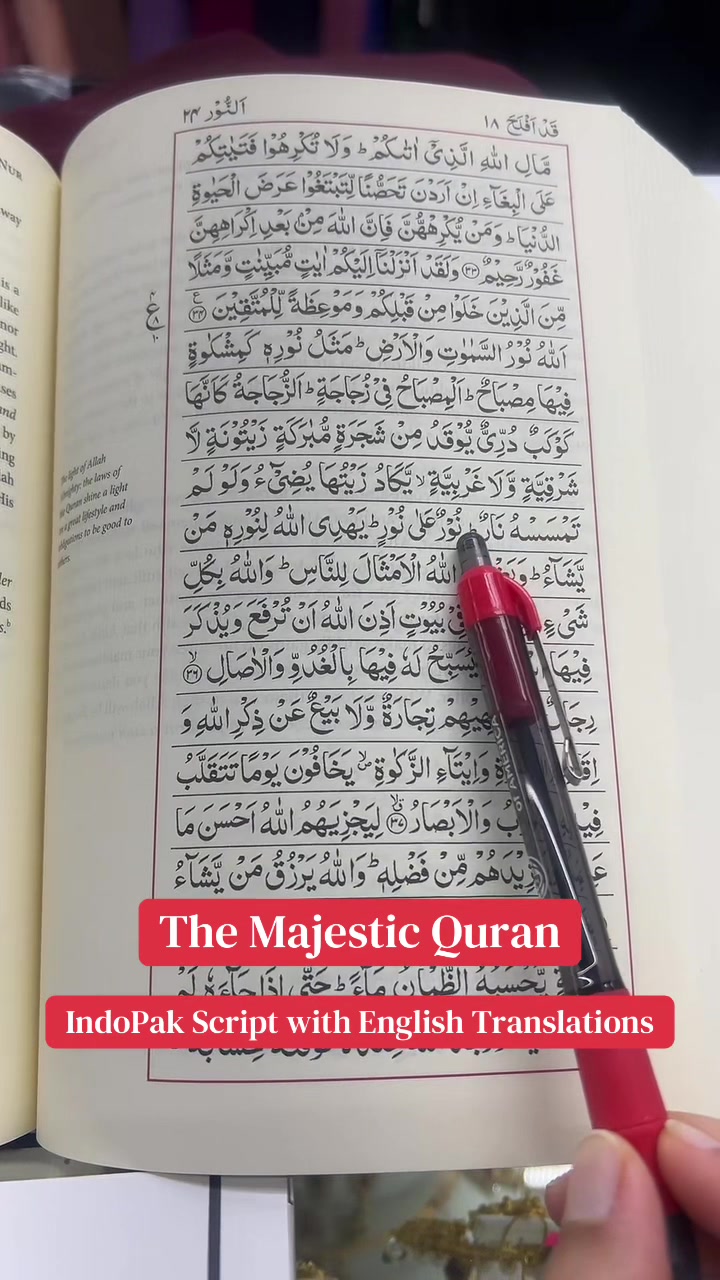 قَدْ اَفْلَحَ ١٨
اَلنُّوْر ٢٤
مَّالِ اللّٰهِ الَّذِيْۤ اٰتٰىكُمْ ؕ وَلَا تُكْرِهُوْا فَتَيٰتِكُمْ
عَلَى الْبِغَآءِ اِنْ اَرَدْنَ تَحَصُّنًا لِّتَبْتَغُوْا عَرَضَ الْحَيٰوةِ
الدُّنْيَا ؕ وَمَنْ يُّكْرِهْهُّنَّ فَاِنَّ اللّٰهَ مِنْۢ بَعْدِ اِكْرَاهِهِنَّ
غَفُوْرٌ رَّحِيْمٌ ﴿٣٣﴾ وَلَقَدْ اَنْزَلْنَاۤ اِلَيْكُمْ اٰيٰتٍ مُّبَيِّنٰتٍ وَّمَثَلًا
مِّنَ الَّذِيْنَ خَلَوْا مِنْ قَبْلِكُمْ وَمَوْعِظَةً لِّلْمُتَّقِيْنَ ﴿٣٤﴾ ع
اَللّٰهُ نُوْرُ السَّمٰوٰتِ وَالْاَرْضِ ؕ مَثَلُ نُوْرِهٖ كَمِشْكٰوةٍ
فِيْهَا مِصْبَاحٌ ؕ اَلْمِصْبَاحُ فِيْ زُجَاجَةٍ ؕ اَلزُّجَاجَةُ كَاَنَّهَا
كَوْكَبٌ دُرِّيٌّ يُّوْقَدُ مِنْ شَجَرَةٍ مُّبٰرَكَةٍ زَيْتُوْنَةٍ لَّا
شَرْقِيَّةٍ وَّلَا غَرْبِيَّةٍ ۙ يَّكَادُ زَيْتُهَا يُضِيْٓءُ وَلَوْ لَمْ
تَمْسَسْهُ نَارٌ ؕ نُوْرٌ عَلٰى نُوْرٍ ؕ يَهْدِى اللّٰهُ لِنُوْرِهٖ مَنْ
يَّشَآءُ ؕ اللّٰهُ الْاَمْثَالَ لِلنَّاسِ ؕ وَاللّٰهُ بِكُلِّ
شَيْءٍ بُيُوْتٍ اَذِنَ اللّٰهُ اَنْ تُرْفَعَ وَيُذْكَرَ
فِيْهَا يُسَبِّحُ لَهٗ فِيْهَا بِالْغُدُوِّ وَالْاٰصَالِ ﴿٣٦﴾ ۙ
تِجَارَةٌ وَّلَا بَيْعٌ عَنْ ذِكْرِ اللّٰهِ وَ
وَاِيْتَآءِ الزَّكٰوةِ ۙ يَخَافُوْنَ يَوْمًا تَتَقَلَّبُ
وَالْاَبْصَارُ ﴿٣٧﴾ لِيَجْزِيَهُمُ اللّٰهُ اَحْسَنَ مَا
مِّنْ فَضْلِهٖ ؕ وَاللّٰهُ يَرْزُقُ مَنْ يَّشَآءُ
يَّحْسَبُهُ الظَّمْاٰنُ مَآءً ؕ حَتّٰىۤ اِذَا جَآءَهٗ لَمْ
ع
٨
١٠
The light of Allah
Almighty: the laws of
the Quran shine a light
a great lifestyle and
obligations to be good to
others.
NUR
way
is a
like
nor
ght.
ses
and
by
ing
lah
His
ds
The Majestic Quran
IndoPak Script with English Translations